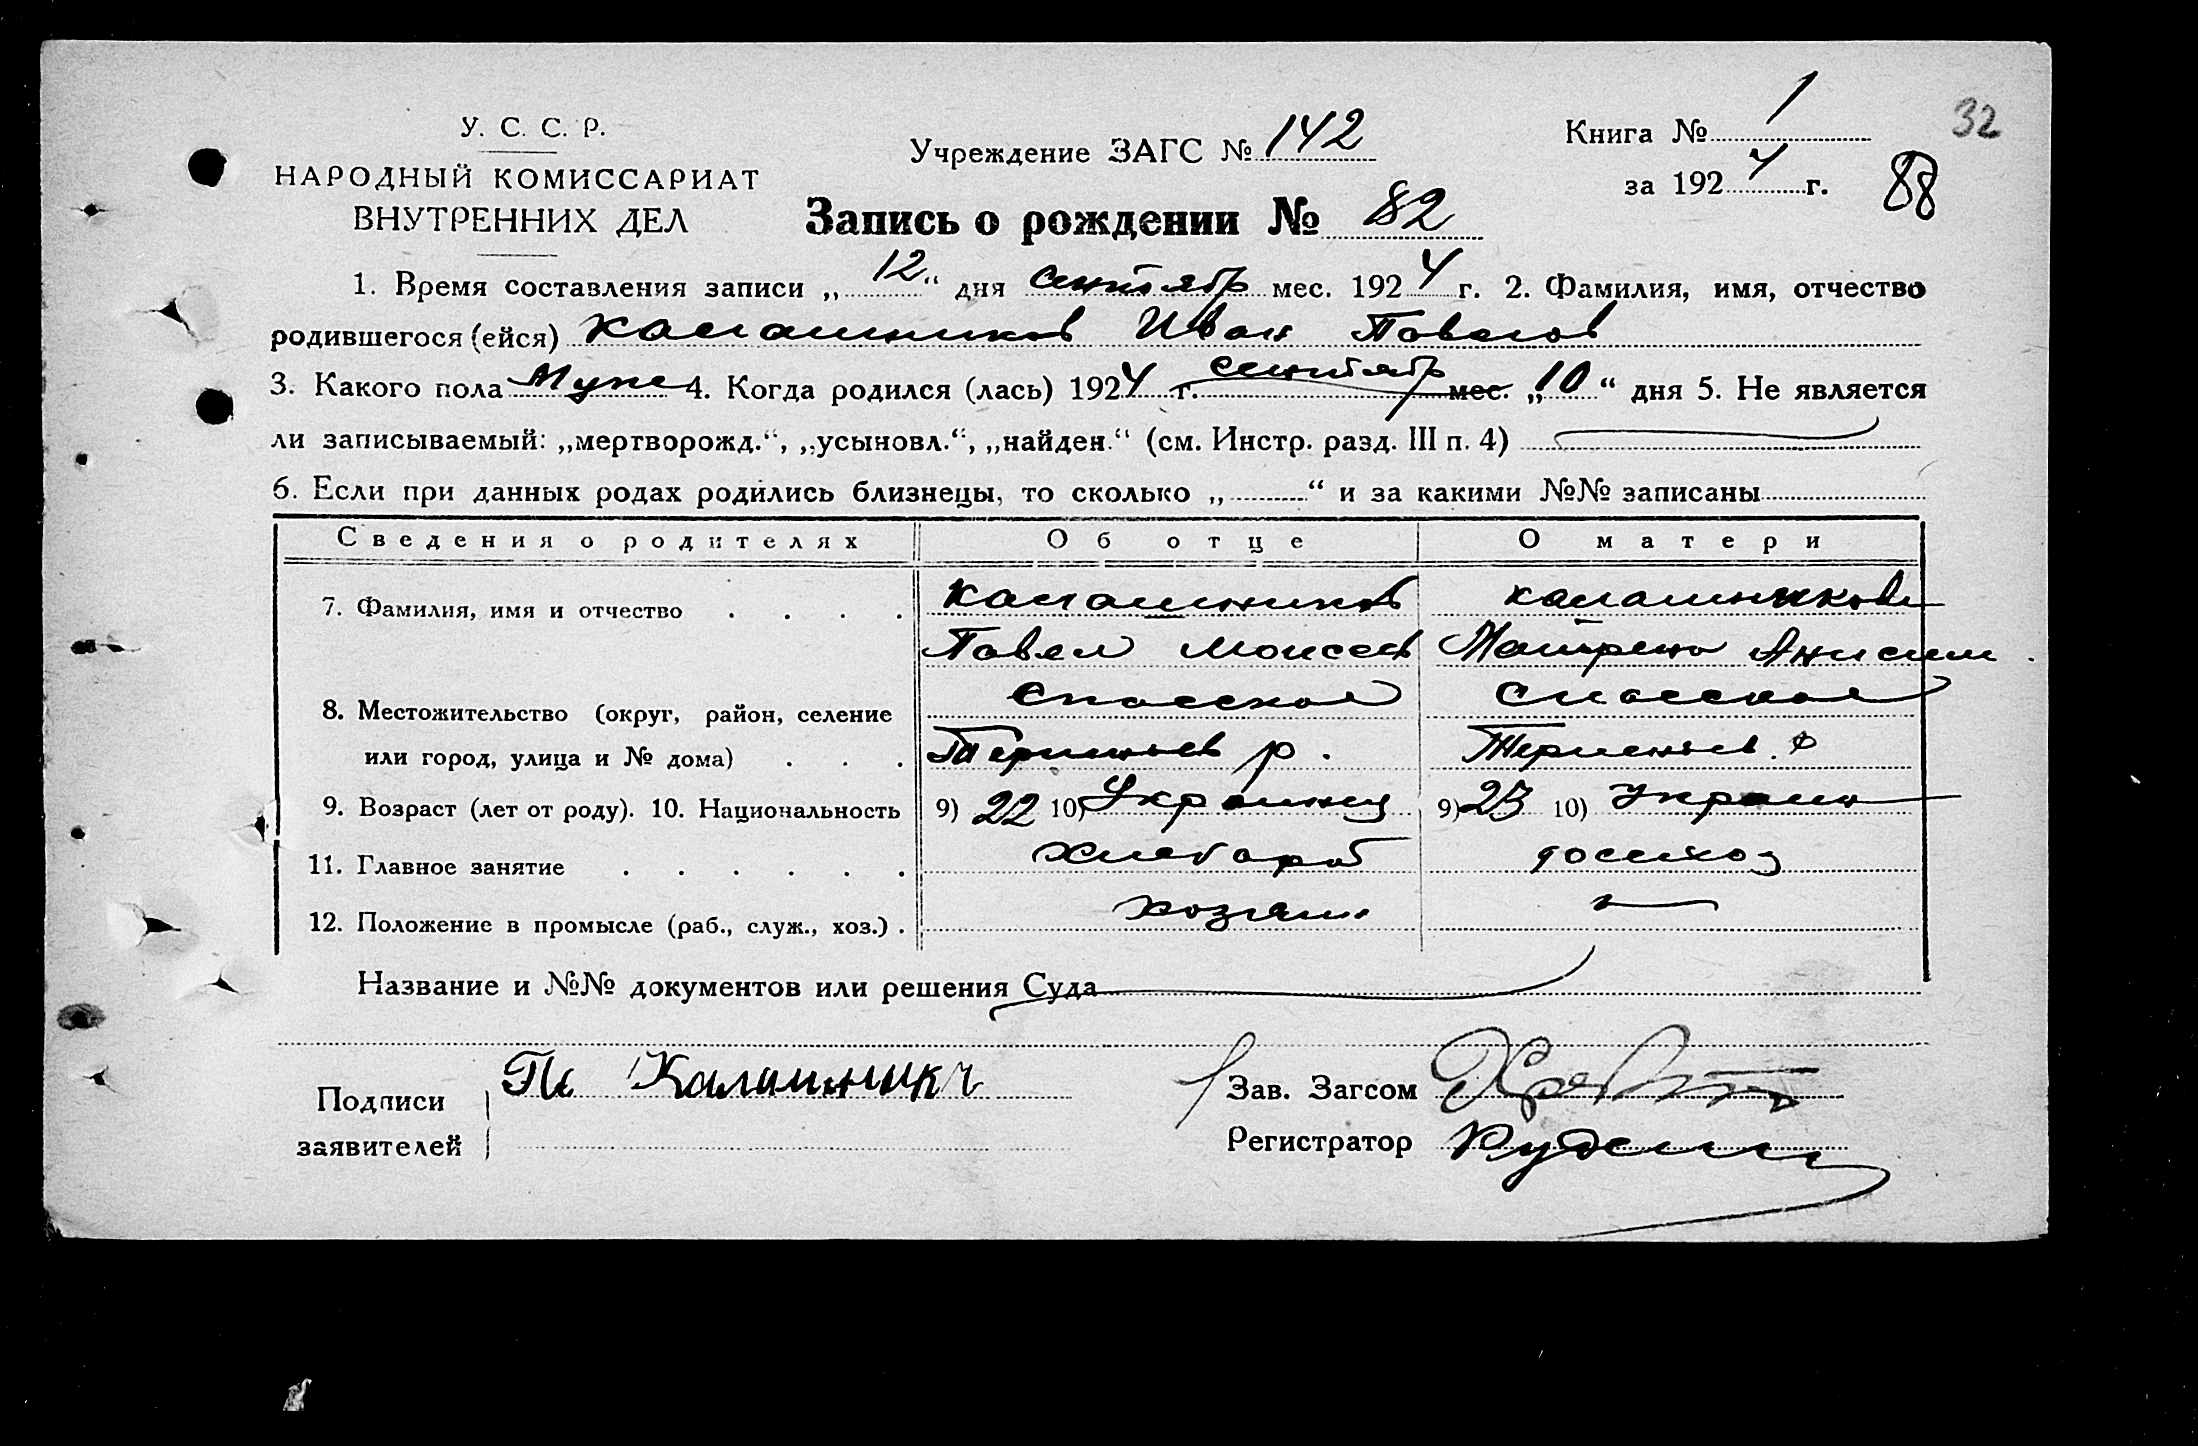 32
У. С. С. Р.
Учреждение ЗАГС № 142
Книга № 1
НАРОДНЫЙ КОМИССАРИАТ
за 1924 г. 88
ВНУТРЕННИХ ДЕЛ
Запись о рождении № 82
1. Время составления записи „12“ дня сентябр мес. 1924 г. 2. Фамилия, имя, отчество
родившегося (ейся) Калашников Иван Павлов
3. Какого пола Муже 4. Когда родился (лась) 1924 г. сентябр мес. „10“ дня 5. Не является
ли записываемый: „мертворожд.“, „усыновл.“, „найден.“ (см. Инстр. разд. III п. 4)
6. Если при данных родах родились близнецы, то сколько „ “ и за какими №№ записаны
Сведения о родителях Об отце О матери
7. Фамилия, имя и отчество . . . . Калашников Калашникова
Павел Моисеев Матрена Анисим
8. Местожительство (округ, район, селение Спасская Спасская
или город, улица и № дома) . . . р.
9. Возраст (лет от роду). 10. Национальность 9) 22 10) Украинец 9) 23 10) Украин
11. Главное занятие . . . . . . Хлебороб домхоз
12. Положение в промысле (раб., служ., хоз.) . хозяин
Название и №№ документов или решения Суда
Подписи
заявителей
Калашник
Зав. Загсом
Регистратор